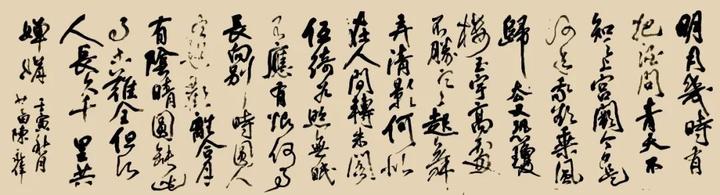 明月幾時有
把酒問青天不
知天上宮闕今夕是
何年我欲乘風
歸去又恐瓊
樓玉宇高處
不勝寒起舞
弄清影何似
在人間轉朱閣
低綺户照無眠
不應有恨何事
長向別時圓人
有悲歡離合月
有陰晴圓缺此
事古難全但願
人長久千里共
嬋娟
壬寅秋月